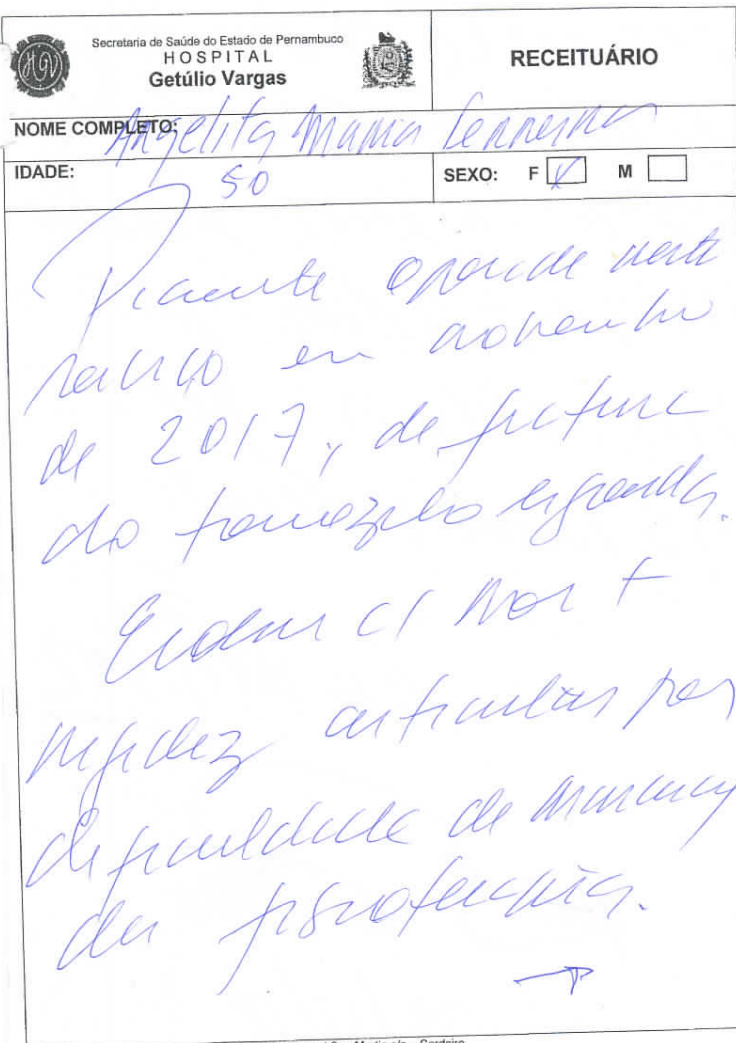 Secretaria de Saúde do Estado de Pernambuco
HOSPITAL
Getúlio Vargas
RECEITUÁRIO
NOME COMPLETO: Angelita Maria Ferreira
IDADE: 50
SEXO: F X M
Paciente operada neste
serviço em novembro
de 2017, de fratura
do tornozelo esquerdo.
Evoluiu c/ dor +
rigidez articular por
dificuldade de
da fisioterapia.
→